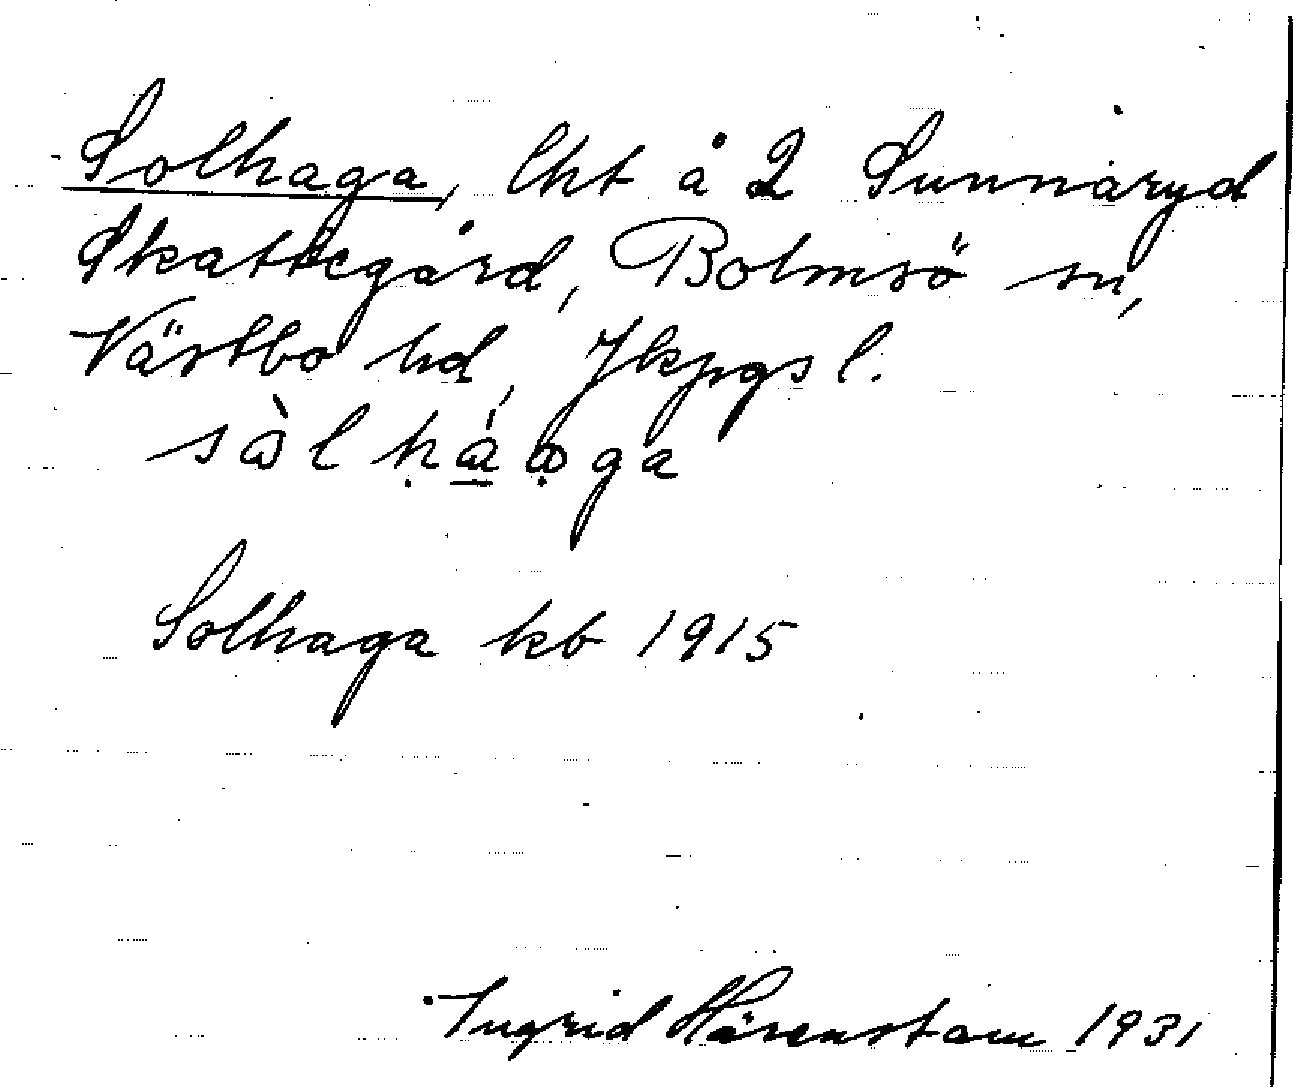 Solhaga, lht å 2 Sunnaryd
Skattegård, Bolmsö sn,
Västbo hd, Jkpgs l.
Solhaga kb 1915
Ingrid Härenstam 1931